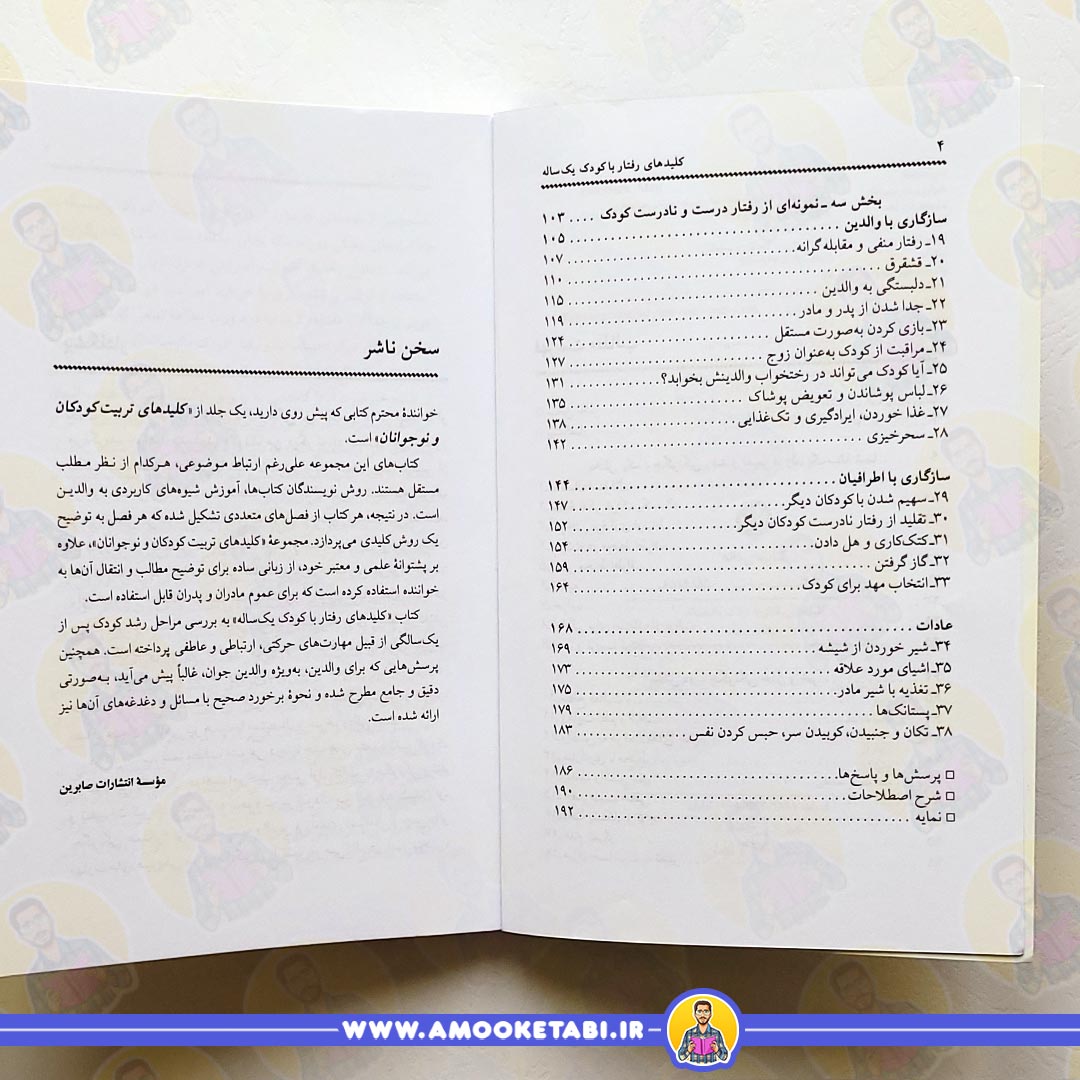 ۴
کلیدهای رفتار با کودک یک‌ساله
بخش سه ـ نمونه‌ای از رفتار درست و نادرست کودک .... ۱۰۳
سازگاری با والدین ........ ۱۰۵
۱۹ـ رفتار منفی و مقابله‌گرانه ........ ۱۰۷
۲۰ـ قشقرق ........ ۱۱۰
۲۱ـ دلبستگی به والدین ........ ۱۱۵
۲۲ـ جدا شدن از پدر و مادر ........ ۱۱۹
۲۳ـ بازی کردن به‌صورت مستقل ........ ۱۲۴
۲۴ـ مراقبت از کودک به‌عنوان زوج ........ ۱۲۷
۲۵ـ آیا کودک می‌تواند در رختخواب والدینش بخوابد؟ ........ ۱۳۱
۲۶ـ لباس پوشاندن و تعویض پوشاک ........ ۱۳۵
۲۷ـ غذا خوردن، ایرادگیری و تک‌غذایی ........ ۱۳۸
۲۸ـ سحرخیزی ........ ۱۴۲
سازگاری با اطرافیان ........ ۱۴۴
۲۹ـ سهیم شدن با کودکان دیگر ........ ۱۴۷
۳۰ـ تقلید از رفتار نادرست کودکان دیگر ........ ۱۵۲
۳۱ـ کتک‌کاری و هل دادن ........ ۱۵۴
۳۲ـ گاز گرفتن ........ ۱۵۹
۳۳ـ انتخاب مهد برای کودک ........ ۱۶۴
عادات ........ ۱۶۸
۳۴ـ شیر خوردن از شیشه ........ ۱۶۹
۳۵ـ اشیای مورد علاقه ........ ۱۷۳
۳۶ـ تغذیه با شیر مادر ........ ۱۷۵
۳۷ـ پستانک‌ها ........ ۱۷۹
۳۸ـ تکان و جنبیدن، کوبیدن سر، حبس کردن نفس ........ ۱۸۳
□ پرسش‌ها و پاسخ‌ها ........ ۱۸۶
□ شرح اصطلاحات ........ ۱۹۰
□ نمایه ........ ۱۹۲
سخن ناشر
خوانندهٔ محترم کتابی که پیش روی دارید، یک جلد از «کلیدهای تربیت کودکان
و نوجوانان» است.
کتاب‌های این مجموعه علی‌رغم ارتباط موضوعی، هرکدام از نظر مطلب
مستقل هستند. روش نویسندگان کتاب‌ها، آموزش شیوه‌های کاربردی به والدین
است. در نتیجه، هر کتاب از فصل‌های متعددی تشکیل شده که هر فصل به توضیح
یک روش کلیدی می‌پردازد. مجموعهٔ «کلیدهای تربیت کودکان و نوجوانان»، علاوه
بر پشتوانهٔ علمی و معتبر خود، از زبانی ساده برای توضیح مطالب و انتقال آن‌ها به
خواننده استفاده کرده است که برای عموم مادران و پدران قابل استفاده است.
کتاب «کلیدهای رفتار با کودک یک‌ساله» به بررسی مراحل رشد کودک پس از
یک‌سالگی از قبیل مهارت‌های حرکتی، ارتباطی و عاطفی پرداخته است. همچنین
پرسش‌هایی که برای والدین، به‌ویژه والدین جوان، غالباً پیش می‌آید، به‌صورتی
دقیق و جامع مطرح شده و نحوهٔ برخورد صحیح با مسائل و دغدغه‌های آن‌ها نیز
ارائه شده است.
مؤسسهٔ انتشارات صابرین
WWW.AMOOKETABI.IR